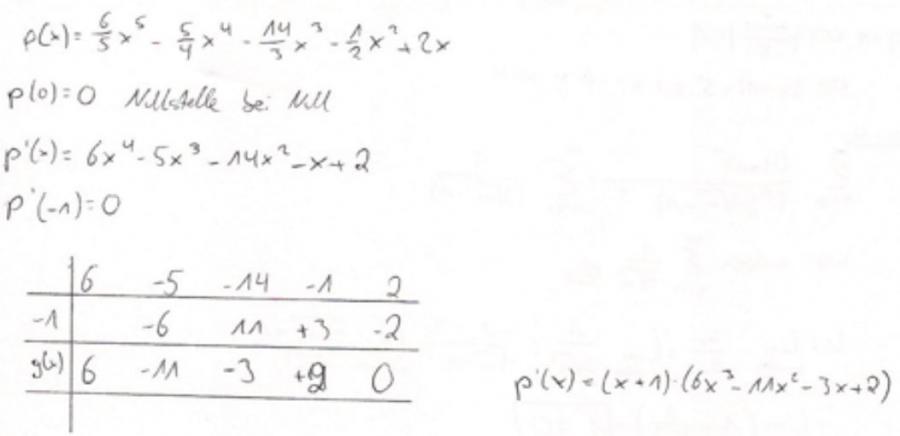 p(x) = 6/5 x⁵ - 5/4 x⁴ - 14/3 x³ - 1/2 x² + 2x
p(0) = 0 Nullstelle bei Null
p'(x) = 6x⁴ - 5x³ - 14x² - x + 2
p'(-1) = 0
6 -5 -14 -1 2
-1 -6 11 +3 -2
g(x) 6 -11 -3 +2 0
p'(x) = (x+1)·(6x³ - 11x² - 3x + 2)